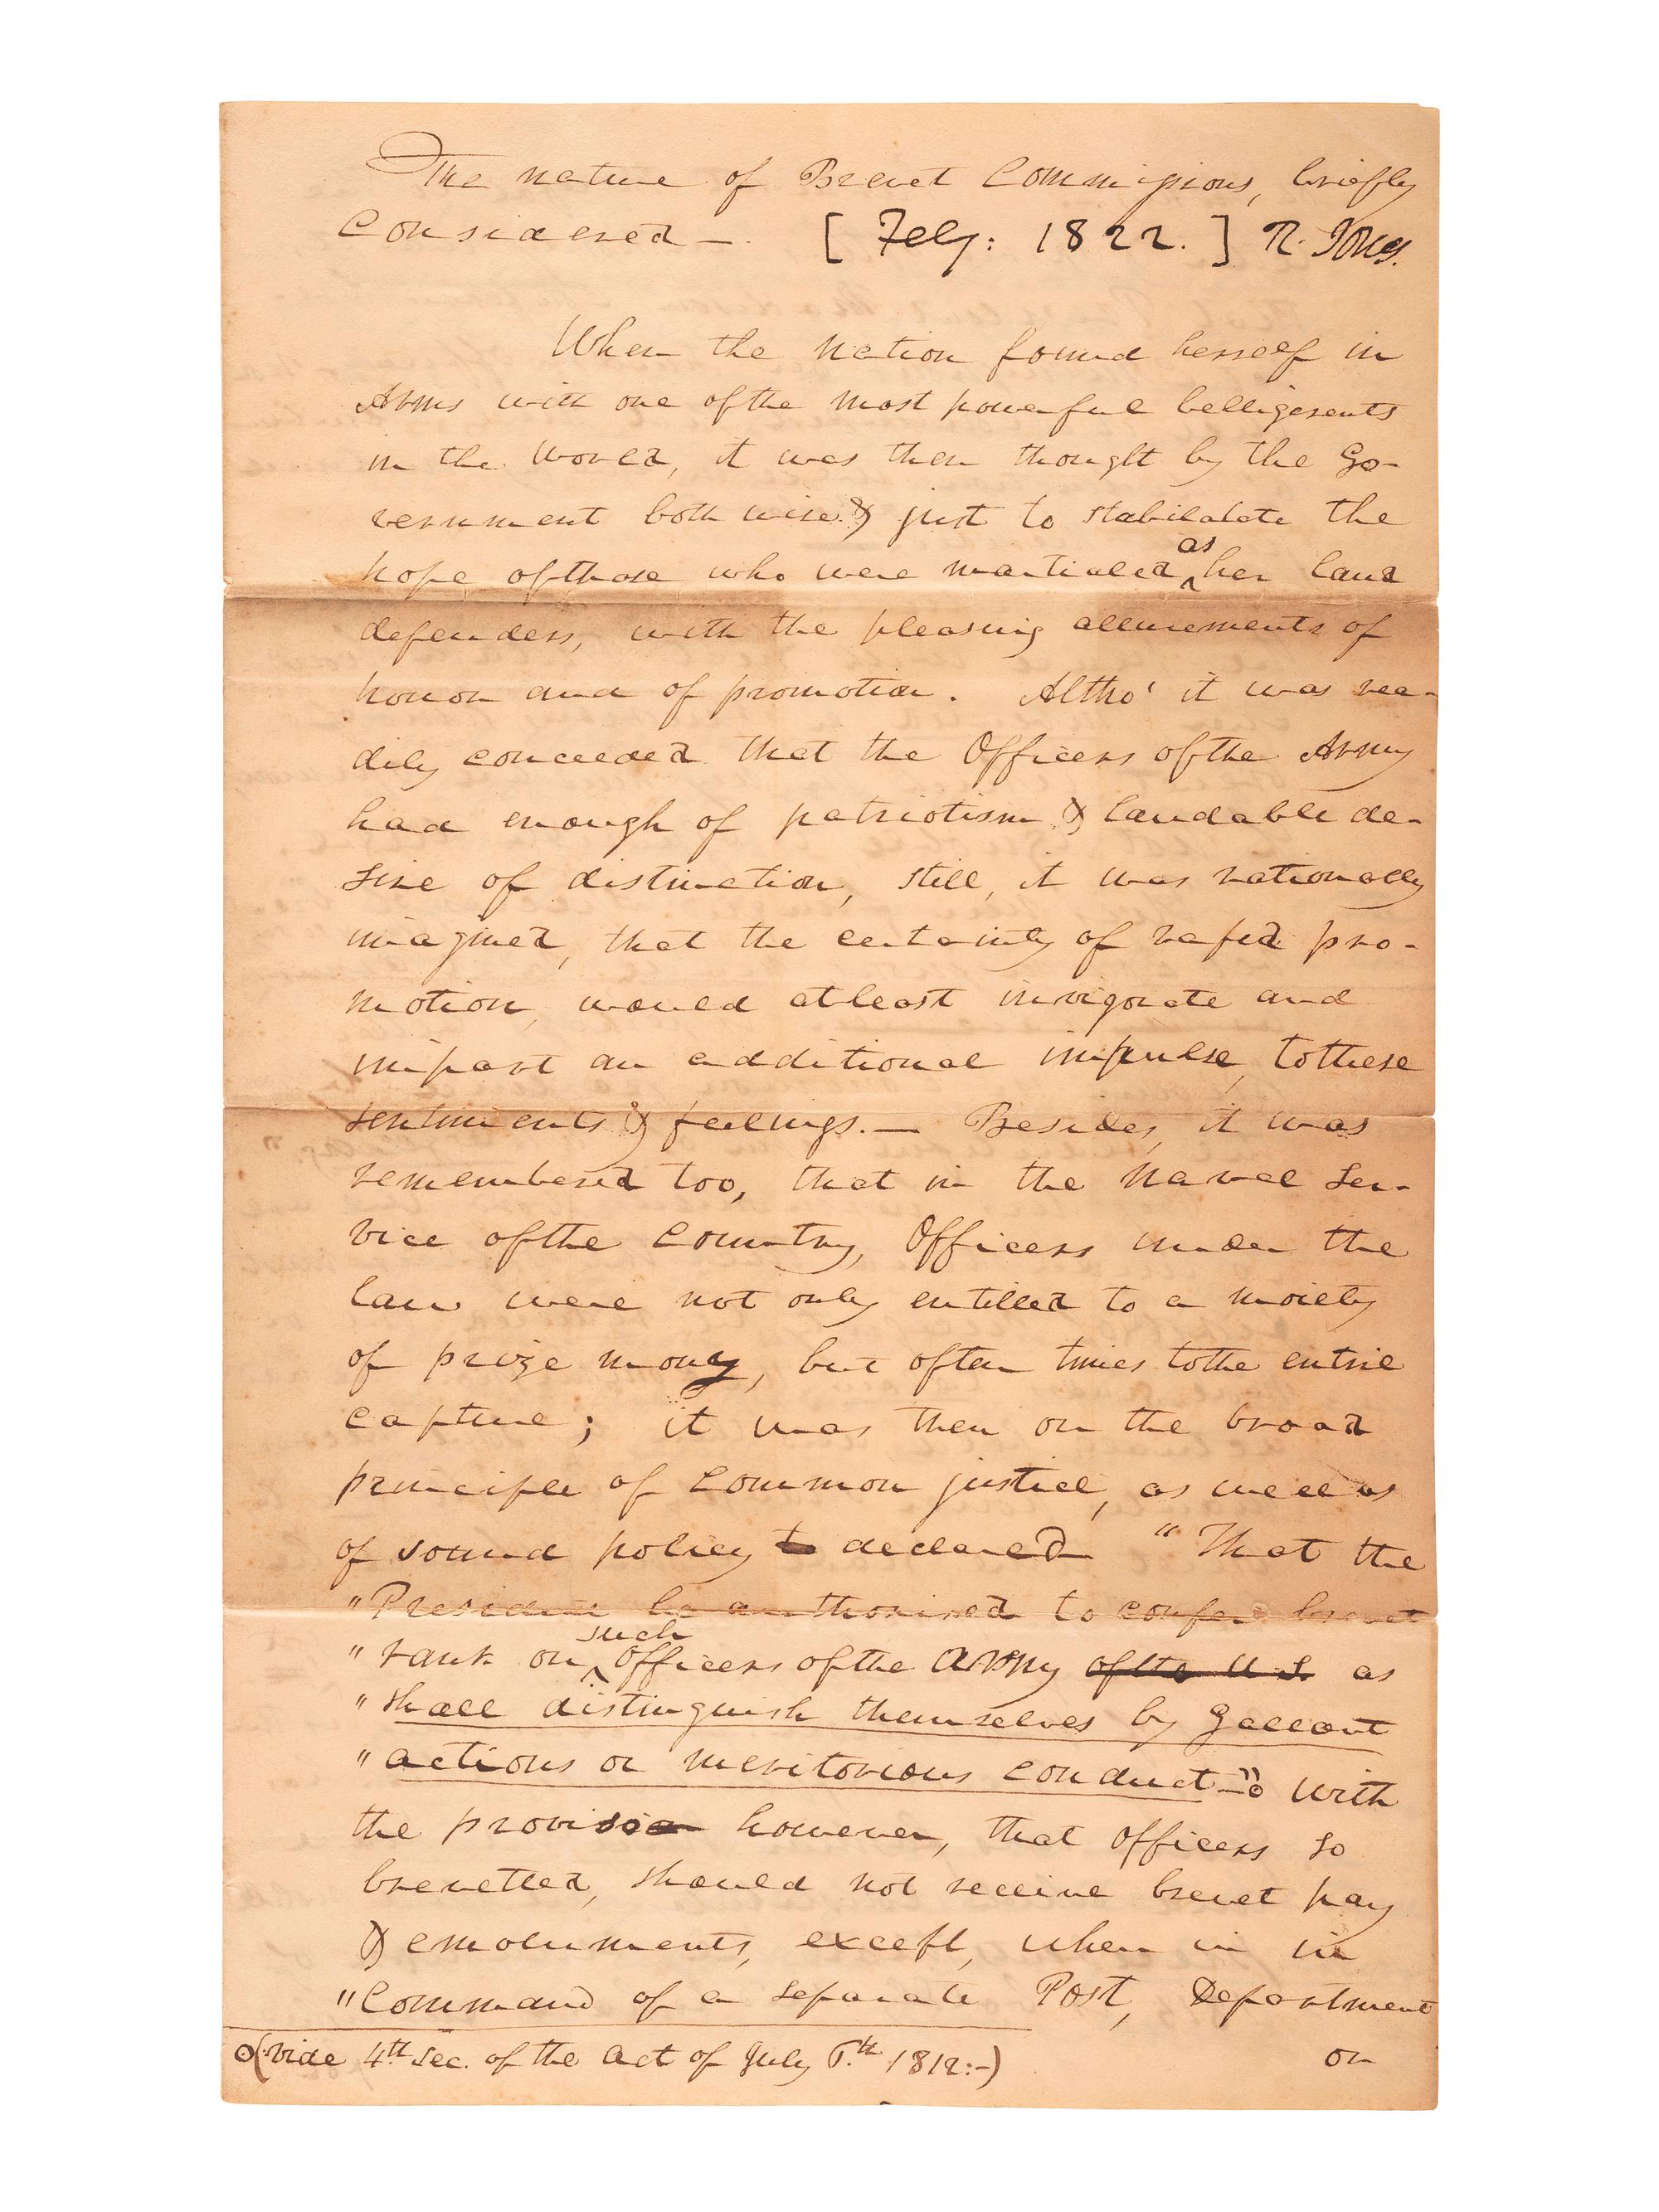 The nature of Brevet Commissions, briefly
Considered —. [Feby: 1822.] R. Jones.
When the Nation found herself in
Arms with one of the most powerful belligerents
in the World, it was then thought by the Go-
vernment both wise & just to stabilatete the
hope of those who were martialed as her land
defenders, with the pleasing allurements of
honor and of promotion. Altho' it was rea-
dily conceeded that the Officers of the Army
had enough of patriotism & laudable de-
sire of distinction, still, it was rationally
imagined, that the certainty of rapid pro-
motion, would atleast invigorate and
impart an additional impulse, to these
sentiments & feelings. — Besides, it was
remembered too, that in the Naval Ser-
vice of the Country, Officers under the
law were not only entitled to a moiety
of prize money, but often times to the entire
capture; it was then on the broad
principle of Common justice, as well as
of sound policy to declared "That the
"President be authorised to confer brevet
"rank on such Officers of the Army of the U.S. as
"shall distinguish themselves by gallant
"actions or meritorious conduct—" With
the provision however, that Officers so
brevetted, should not receive brevet pay
& emoluments, except, when in in
"Command of a separate Post, Department
or
(vide 4th Sec. of the act of July 6.th 1812:-)